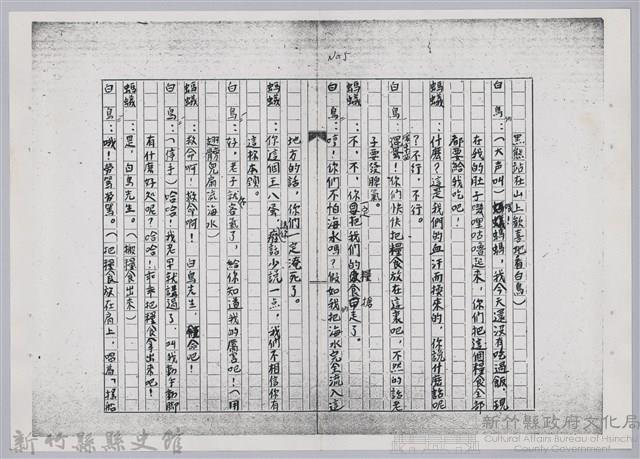 No 5
黑熊站在山上歡喜地看白鳥)
白鳥:(大声叫)喂!螞蟻螞蟻,我今天還沒有吃過飯,現
在我的肚子嘰哩咕嚕起來,你們把這個糧食全部
都要給我吃吧!
螞蟻:什麼?這是我們的血汗而換來的,你說什麼話呢
?不行,不行
白鳥:你們快快把糧食放在這裏吧,不然的話老
子要發脾氣。
螞蟻:不,不,你一定要把我們的糧食搶走了。
白鳥:哼!你們不怕海水嗎?假如我把海水完全流入這
地方的話,你們一定淹死了。
螞蟻:你這個王八蛋,請你少說一点,我們不相信你有
這樣本領。
白鳥:好,老子不客氣了,給你知道我的厲害吧!(用
翅膀兒扇這海水
螞蟻:救命啊!救命啊!白鳥先生,饒命吧!
白鳥:(停手)哈哈!我老早就講過了,叫我動手動脚
有什麼好处呢?哈哈!乖乖把糧食拿出來吧!
螞蟻:是,白鳥先生。(搬糧食出來)
白鳥:哦!勞駕勞駕。(把糧食放在肩上,唱着「搖船
新竹縣縣史館
新竹縣政府文化局
Cultural Affairs Bureau of Hsinchu
County Government